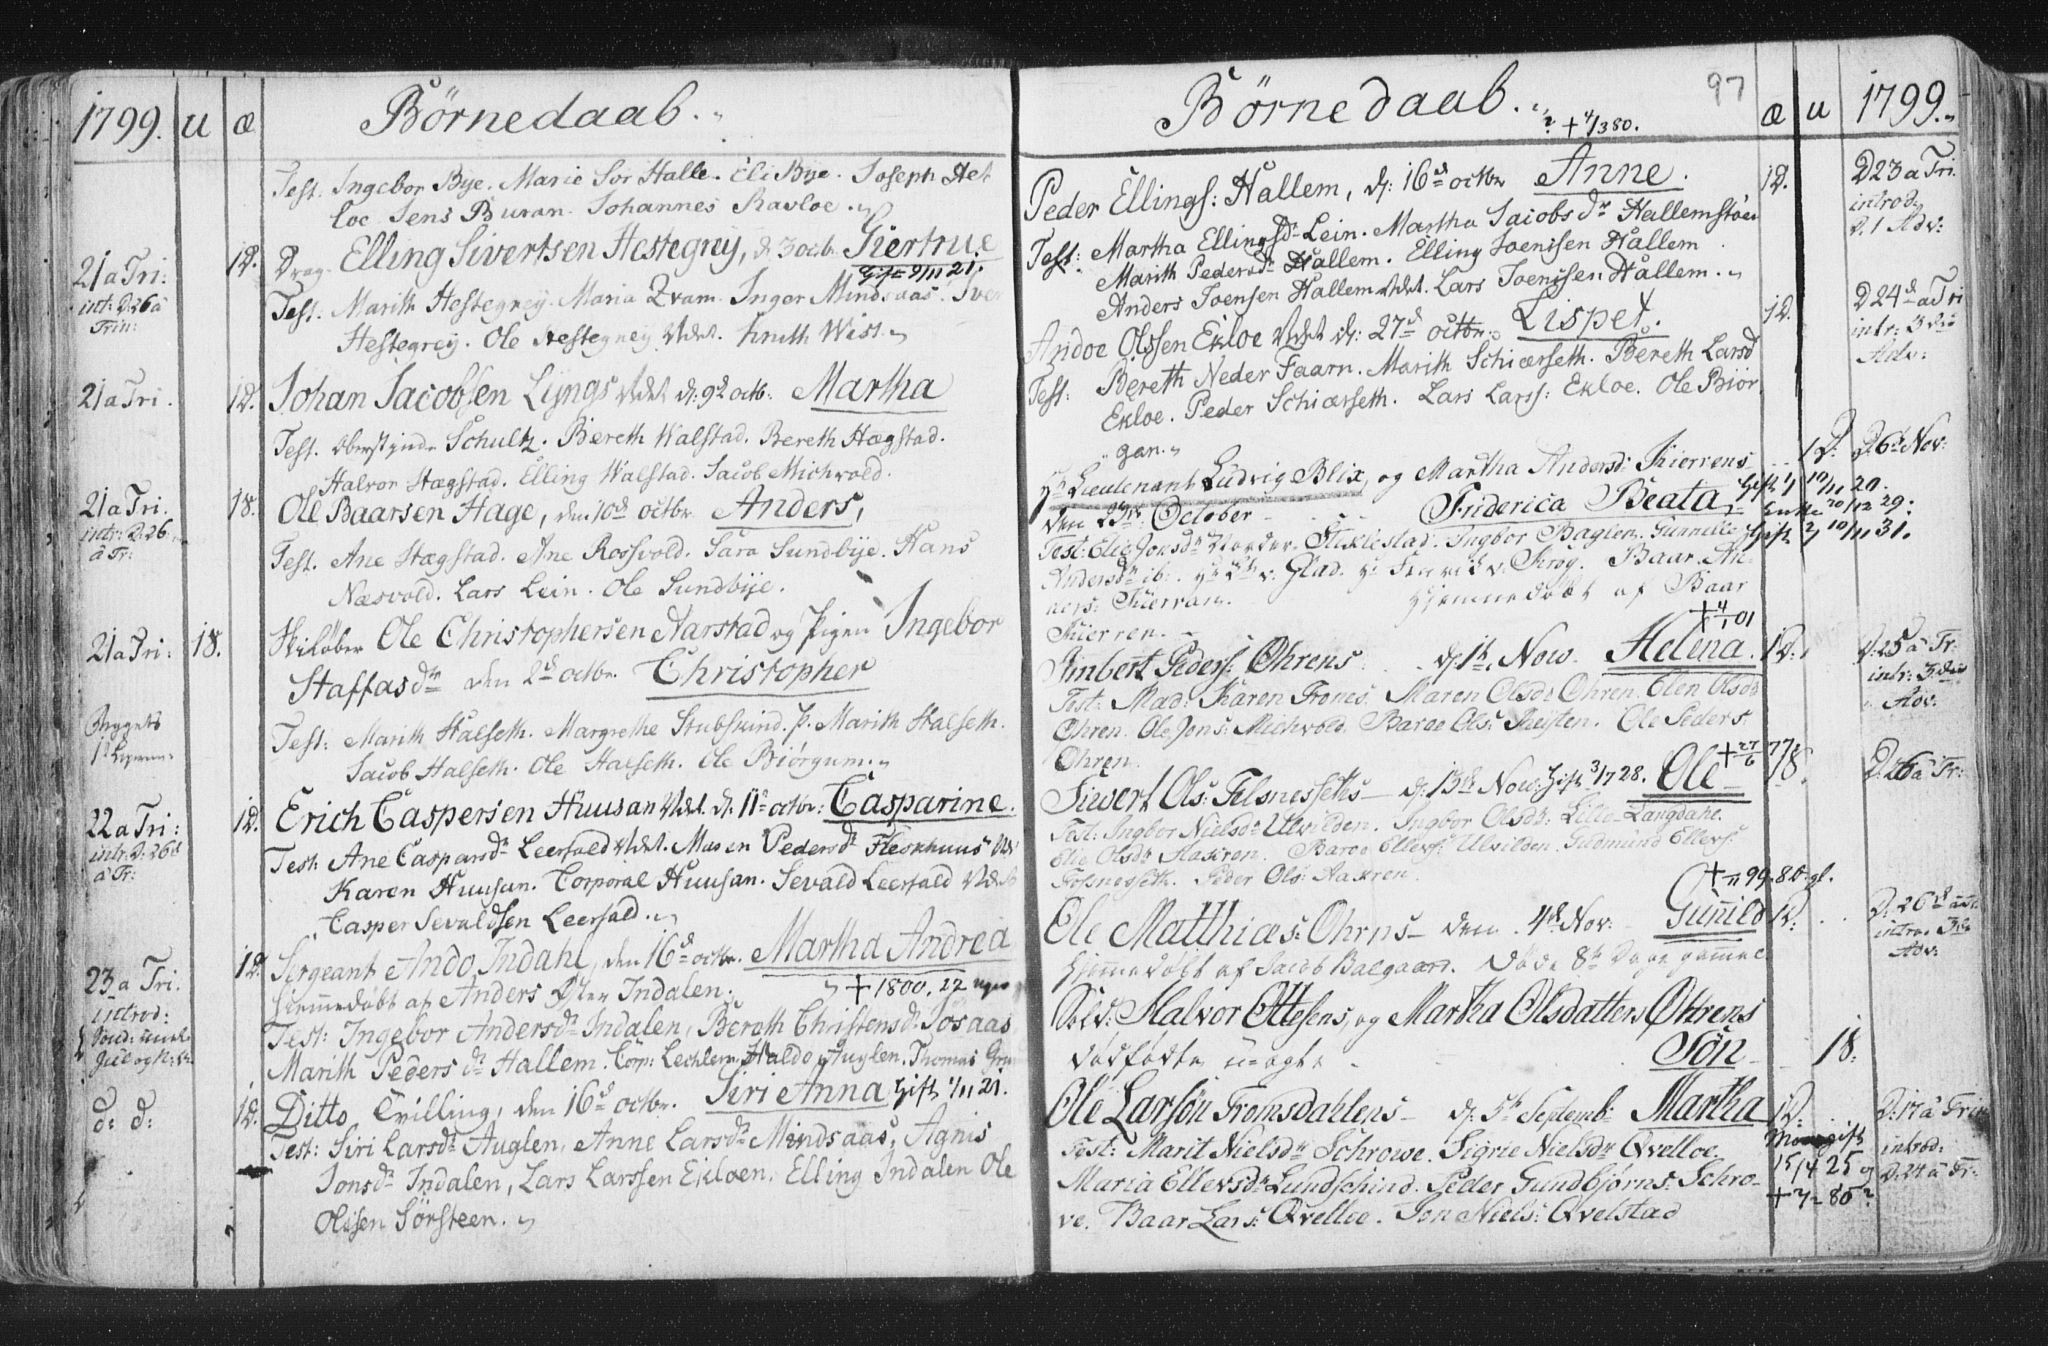 1799. u æ Börnedaab.
Test. Ingebor Bye. Marie Sor Halle. Eli Bye. Joseph Aet
loe. Jens Buran. Johannes Ravloe.
21 a Tri: 1D. Drag. Elling Sivertsen Hestegrey, d. 3 octb. Giertrue
intr: D: 26 a Trin: Gift 9/11 21.
Test. Marith Hestegrey. Maria Qvam. Inger Mindsaas. Iver
Hestegrey. Ole Hestegrey Vdst. Knuth Wist.
21 a Tri. 1D. Johan Jacobsen Lyngs Vdst d: 9d octb. Martha
Test. Oberstinde Schultz. Bereth Walstad. Bereth Hægstad.
Halvor Hægstad. Elling Walstad. Jacob Michvold.
21 a Tri. 1S. Ole Baarsen Hage, den 10d octbr Anders,
intr: D: 26 a Tr:
Test. Ane Hægstad. Ane Rossvold. Sara Sundbye. Hans
Næsvold. Lars Lein. Ole Sundbye.
21 a Tri: 1S. Skilöber Ole Christophersen Aarstad og Pigen Ingebor
Staffasdr den 2d octbr. Christopher
Test: Marith Halseth. Margrethe Stubskind. P. Marith Halseth.
Jacob Halseth. Ole Halseth. Ole Biörgum.
22 a Tri: 1D. Erich Caspersen Huusan Vdst. d. 11d octbr: Casparine.
intr: D: 26d a Tr:
Test: Ane Caspardr Leersald Vdst. Maren Pedersdr Fleskhuus Vdst
Karen Huusan. Corporal Huusan. Sevald Leersald Vdst
Casper Sevaldsen Leersald.
23 a Tri. 1D. Sergeant Ando Indahl, den 16d octbr. Martha Andrea
introd:
hiemmedöbt af Anders Öster Indalen. + 1800. 22 uger
Test: Ingebor Andersdr Indalen, Bereth Christensdr Josaas
Marith Pedersdr Hallem. Corp: Lechlem, Haldo Auglen. Thomas
d: d: 1D. Ditto Tvilling, den 16d octbr. Siri Anna Gift 1/11 21.
Test: Siri Larsdr Auglen, Anne Larsdr Mindsaas, Agnis
Jonsdr Indalen, Lars Larssen Ekloen. Elling Indalen Ole
Olssen Sörsteen.
Börnedaab. 97 æ u 1799.
? + 4/3 80.
Peder Ellings: Hallem, d: 16d octbr Anne. 1D. D 23 a Tri.
introd. D. 1 Adv:
Test: Martha Ellingsdr Lein. Martha Jacobsdr Hallemstöen
Marith Pedersdr Hallem. Elling Joensen Hallem
Anders Joensen Hallem Vdst. Lars Joensen Hallem.
Andoe Olssen Ekloe Vdst d: 27d octbr. Lispet. 1D. D 24d a Tri
intr: 3die Adv:
Test: Bereth Neder Faarn. Marith Schiærseth. Bereth Larsd
Ekloe. Peder Schiærseth. Lars Larss: Ekloe. Ole Biör
gan.
Hr Lieutenant Ludvig Blix, og Martha Andersd: Kierrens 1D. D. 6d Nov:
den 23de October Friderica Beata Gift 1 10/11 20.
Enke 20/12 29.
Gift 2 10/11 31.
Test: Elie Jonsdr Næder Stiklestad. Ingbor Baglen. Gunnille
Andersdr ib: Hr v: Glad. Hr Fenrik v: Krog. Baar An-
ders: Kierran. Hjemmedöbt af Baar
Kierren.
+ 4/1 01
Imbert Peders: Öhrens d: 1t Now. Helena. 1D. D: 25 a Tr:
intr: 3die Adv:
Test: Mad: Karen Frones. Maren Olsdr Öhren. Elen Olsdr
Öhren. Ole Jons: Michvold. Baroe Ols: Reisten. Ole Peders
Öhren. + 27/6 77.
Siwert Ols: Folsnessetts d: 13d Now: Gift 3/7 28. Ole 1S. D: 26 a Tr:
Test: Ingbor Nielsdr Ulvilden. Ingbor Olsdr Lille-Langdahl.
Elie Olsdr Aasren. Baroe Ellevs: Ulvilden. Gudmund Ellevs:
Fossneseth. Peder Ols: Aasren.
+ 99. 8 D. gl.
Ole Matthias: Öhrns den 4d Nov: Gunild 1D. D: 26d
intro. 3die Adv:
Hjemmedöbt af Jacob Balgaard. Döde 8te Dage gammel.
Sold: Halvor Ottesens, og Martha Olsdatters Öhrens
Dödfödte u-ægte Sön 1S:
Ole Larsön Tromsdahlens d: 5t Septemb: Martha 1D. D: 17 a Trin
introd: D: 24 a Tr:
Test: Marit Nielsdr Schrowe. Sigrie Nielsdr Qvelloe.
gift 15/4 25 og
Maria Ellevsdr Lundschind. Peder Gundbjörns: Schro-
+ 7- 80?
ve. Baar Lars: Qvelloe. Jon Niels: Qvelstad